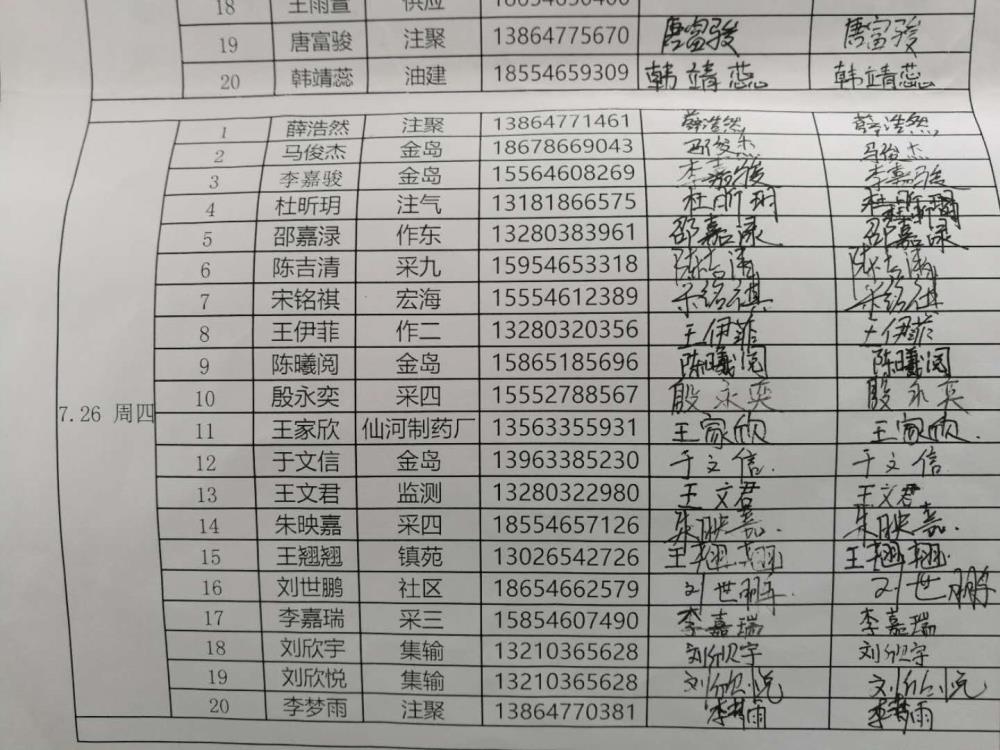 18 王雨萱 供应 18654650400
19 唐富骏 注聚 13864775670 唐富骏 唐富骏
20 韩靖蕊 油建 18554659309 韩靖蕊 韩靖蕊
7.26 周四
1 薛浩然 注聚 13864771461 薛浩然 薛浩然
2 马俊杰 金岛 18678669043 马俊杰 马俊杰
3 李嘉骏 金岛 15564608269 李嘉骏 李嘉骏
4 杜昕玥 注气 13181866575 杜昕玥 杜昕玥
5 邵嘉渌 作东 13280383961 邵嘉渌 邵嘉渌
6 陈吉清 采九 15954653318 陈吉清 陈吉清
7 宋铭祺 宏海 15554612389 宋铭祺 宋铭祺
8 王伊菲 作二 13280320356 王伊菲 王伊菲
9 陈曦阅 金岛 15865185696 陈曦阅 陈曦阅
10 殷永奕 采四 15552788567 殷永奕 殷永奕
11 王家欣 仙河制药厂 13563355931 王家欣 王家欣.
12 于文信 金岛 13963385230 于文信. 于文信.
13 王文君 监测 13280322980 王文君 王文君
14 朱映嘉 采四 18554657126 朱映嘉. 朱映嘉.
15 王翘翘 镇苑 13026542726 王翘翘 王翘翘.
16 刘世鹏 社区 18654662579 刘世鹏. 刘世鹏
17 李嘉瑞 采三 15854607490 李嘉瑞 李嘉瑞
18 刘欣宇 集输 13210365628 刘欣宇 刘欣宇
19 刘欣悦 集输 13210365628 刘欣悦 刘欣悦
20 李梦雨 注聚 13864770381 李梦雨 李梦雨